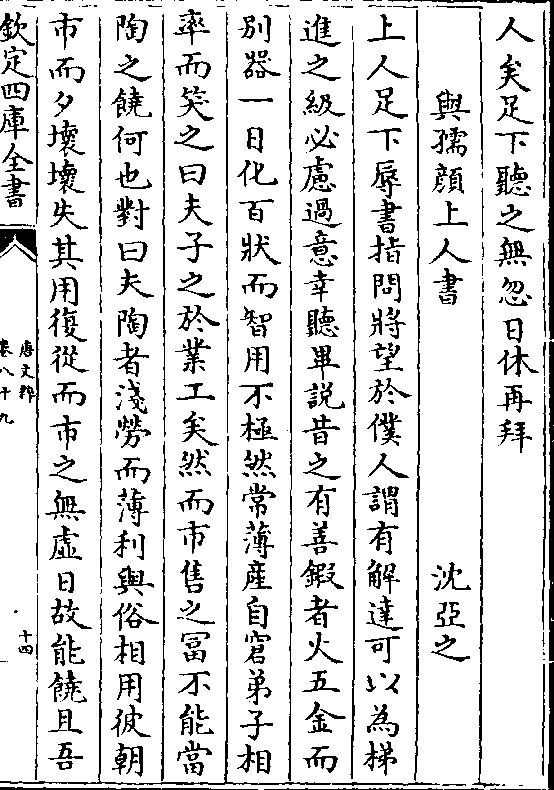 人矣足下聽之無忽日休再拜
與孺顔上人書　沈亞之
上人足下辱書指問將望於僕人謂有解達可以為梯
進之級必慮過意幸聽畢説昔之有善鍜者火五金而
別器一日化百狀而智用不極然常薄産自窘弟子相
率而笑之曰夫子之於業工矣然而市售之冨不能當
陶之饒何也對曰夫陶者淺勞而薄利與俗相用彼朝
市而夕壞壞失其用復從而市之無虚日故能饒且吾
欽定四庫全書
唐文粹
卷八十九
十四